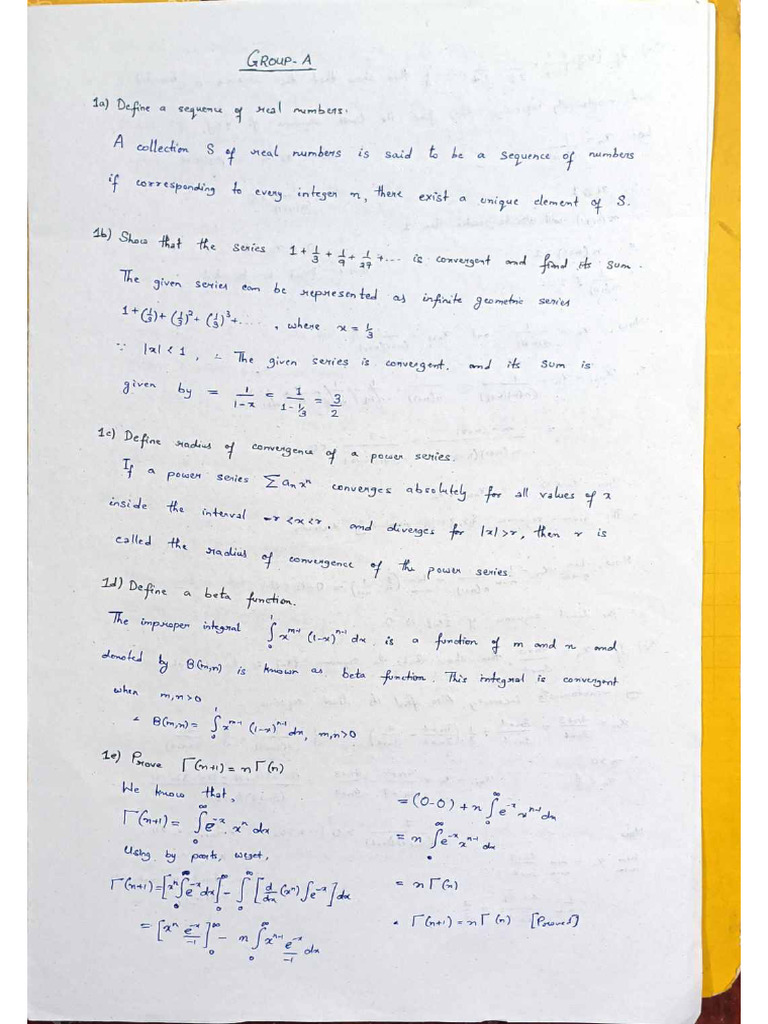 GROUP-A
1a) Define a sequence of real numbers.
A collection S of real numbers is said to be a sequence of numbers
if corresponding to every integer n, there exist a unique element of S.
1b) Show that the series 1 + 1/3 + 1/9 + 1/27 + ... is convergent and find its sum.
The given series can be represented as infinite geometric series
1 + (1/3) + (1/3)² + (1/3)³ + ...., where x = 1/3
∵ |x| < 1, ∴ The given series is convergent. and its sum is
given by = 1/(1-x) = 1/(1-1/3) = 3/2
1c) Define radius of convergence of a power series.
If a power series Σ aₙxⁿ converges absolutely for all values of x
inside the interval -r < x < r. and diverges for |x| > r, then r is
called the radius of convergence of the power series.
1d) Define a beta function.
The improper integral ∫₀¹ x^(m-1) (1-x)^(n-1) dx. is a function of m and n and
denoted by B(m,n) is known as beta function. This integral is convergent
when m,n>0
∴ B(m,n) = ∫₀¹ x^(m-1) (1-x)^(n-1) dx, m,n>0
1e) Prove Γ(n+1) = nΓ(n)
We know that,
Γ(n+1) = ∫₀^∞ e^(-x). xⁿ dx
Using by parts, we get,
Γ(n+1) = [xⁿ ∫₀^∞ e^(-x) dx]₀^∞ - ∫₀^∞ [d/dx (xⁿ) ∫ e^(-x)] dx
= [xⁿ e^(-x)/-1]₀^∞ - n ∫₀^∞ x^(n-1) e^(-x)/-1 dx
= (0-0) + n ∫₀^∞ e^(-x) x^(n-1) dx
= n ∫₀^∞ e^(-x) x^(n-1) dx
= nΓ(n)
∴ Γ(n+1) = nΓ(n) [Proved]